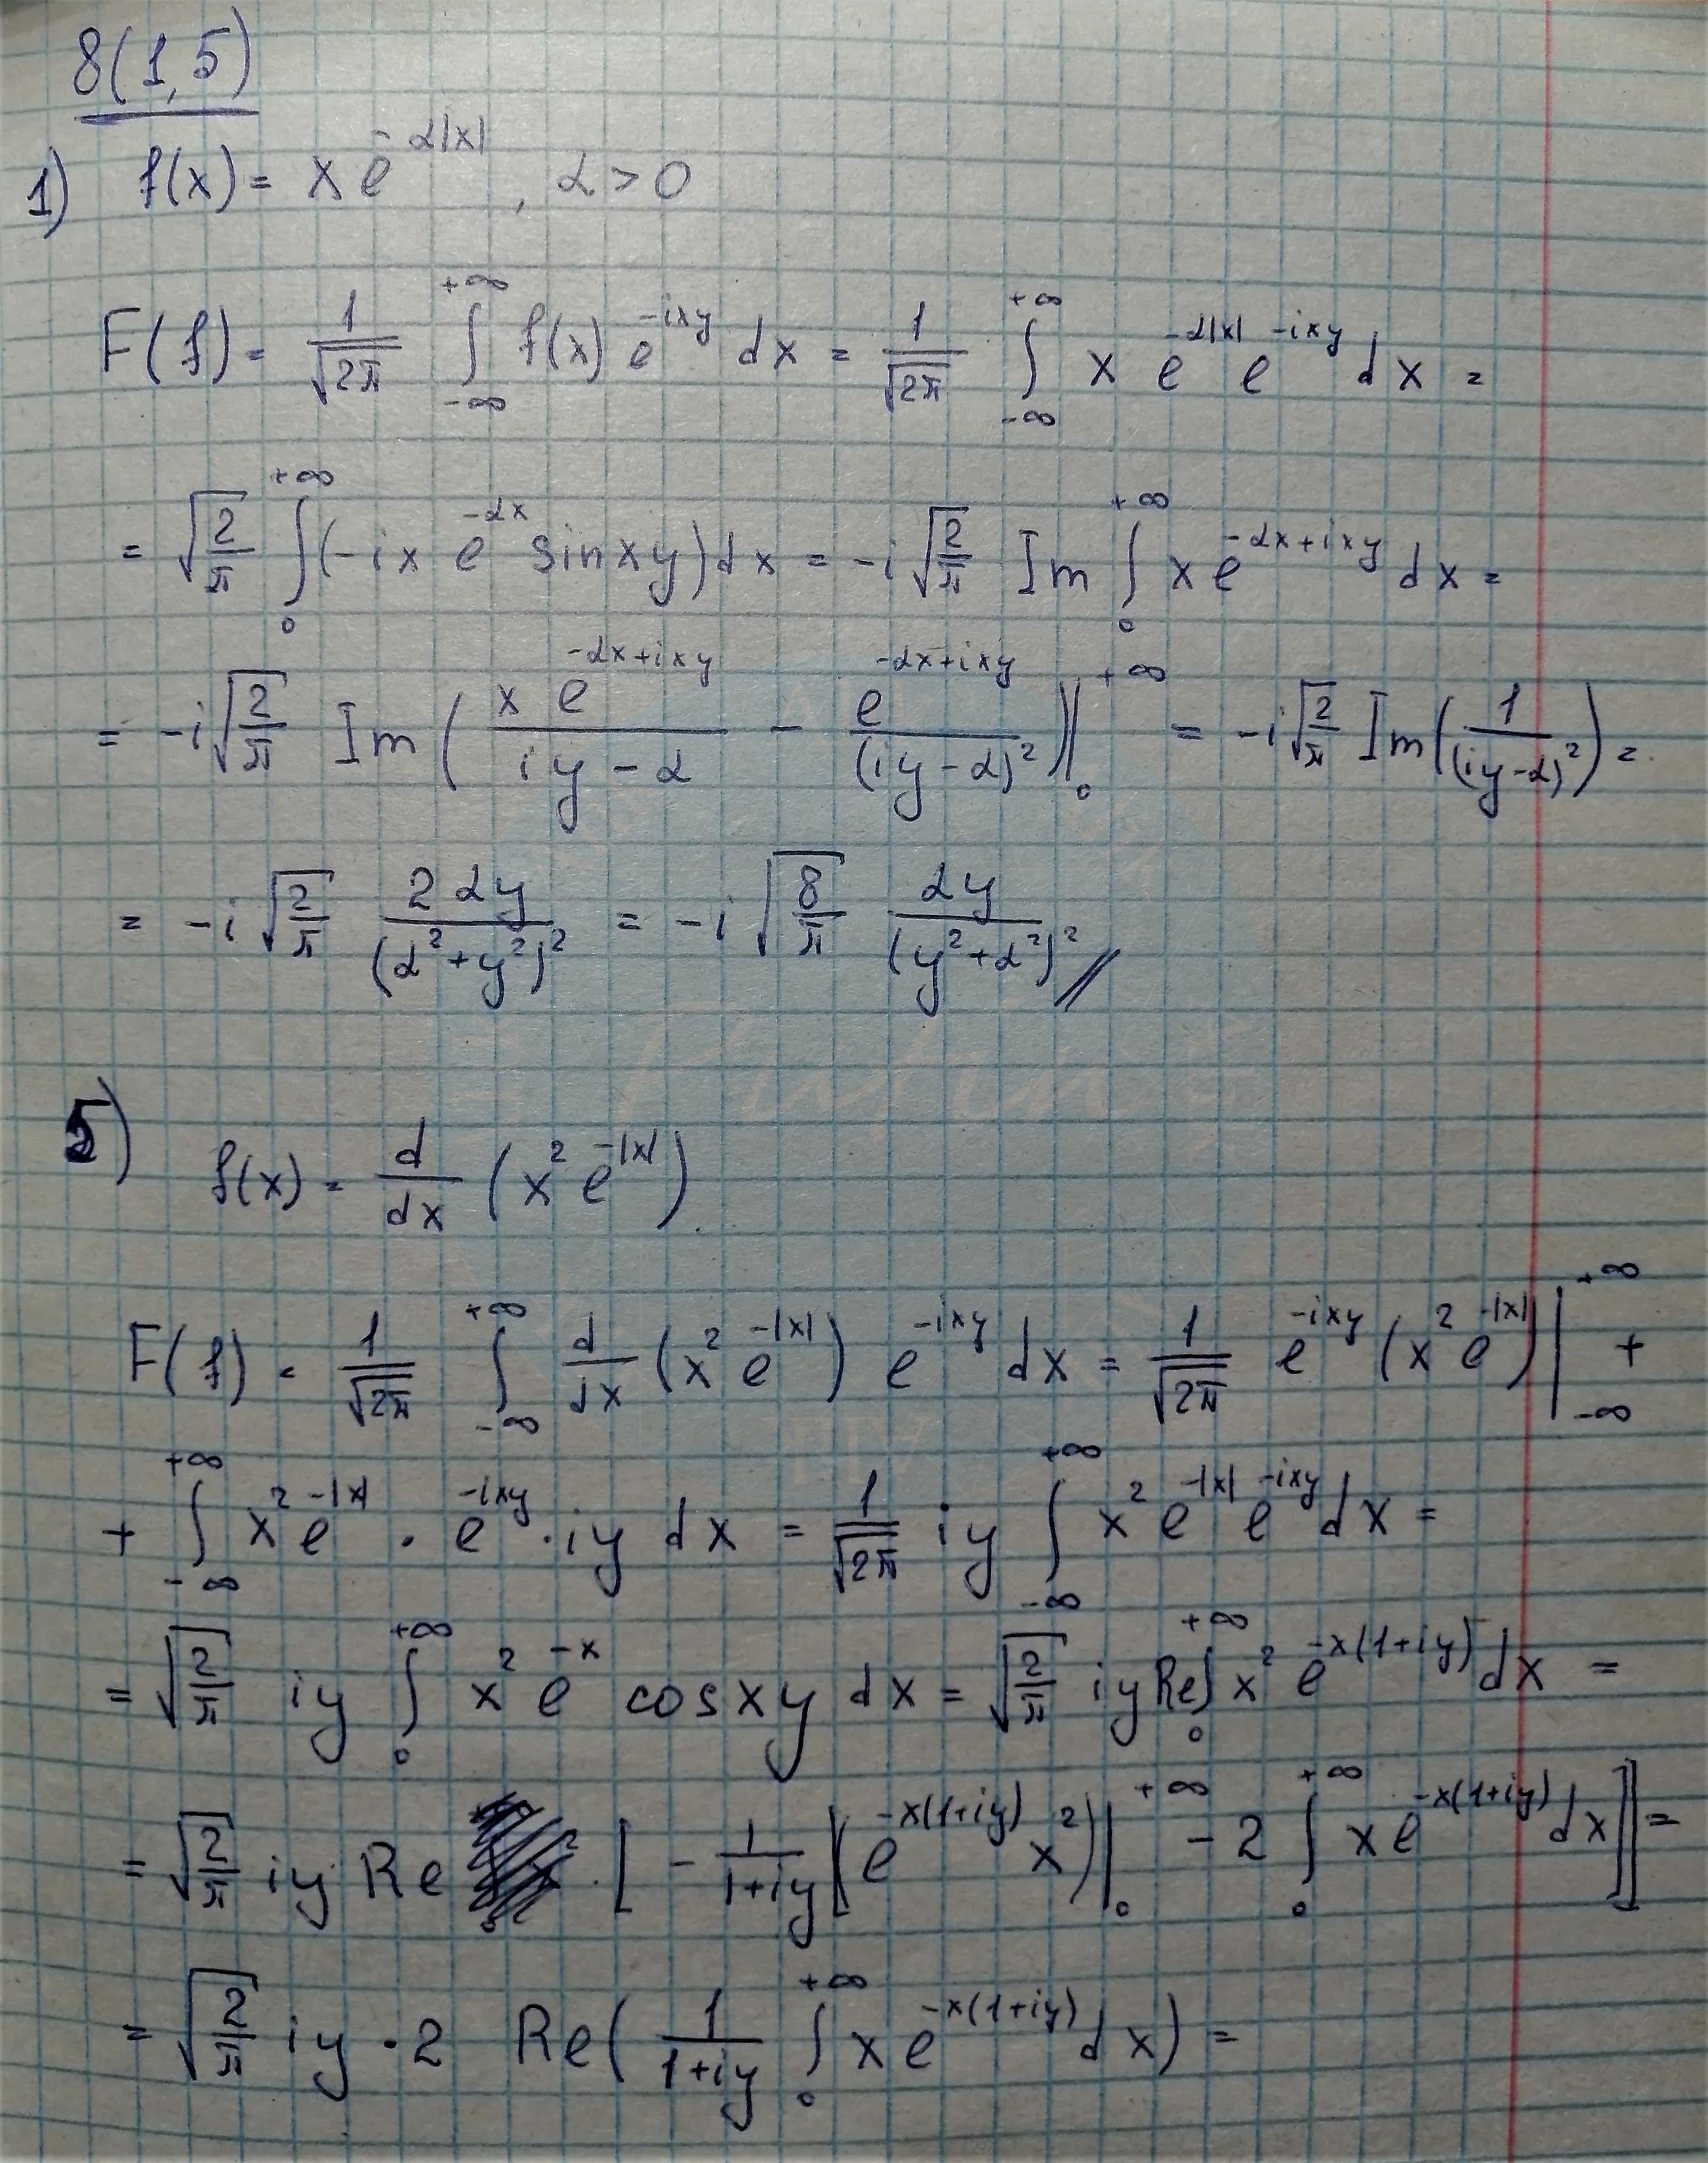 8(1,5)
1) f(x) = x e^{-α|x|}, α > 0
F(f) = \frac{1}{\sqrt{2π}} \int_{-∞}^{+∞} f(x) e^{-ixy} dx = \frac{1}{\sqrt{2π}} \int_{-∞}^{+∞} x e^{-α|x|} e^{-ixy} dx =
= \sqrt{\frac{2}{π}} \int_{0}^{+∞} (-ix e^{-αx} sin xy) dx = -i \sqrt{\frac{2}{π}} Im \int_{0}^{+∞} x e^{-αx+ixy} dx =
= -i \sqrt{\frac{2}{π}} Im ( \frac{x e^{-αx+ixy}}{iy-α} - \frac{e^{-αx+ixy}}{(iy-α)^2} ) |_{0}^{+∞} = -i \sqrt{\frac{2}{π}} Im ( \frac{1}{(iy-α)^2} ) =
= -i \sqrt{\frac{2}{π}} \frac{2αy}{(α^2+y^2)^2} = -i \sqrt{\frac{8}{π}} \frac{αy}{(y^2+α^2)^2} //
5)
f(x) = \frac{d}{dx} (x^2 e^{-|x|}).
F(f) = \frac{1}{\sqrt{2π}} \int_{-∞}^{+∞} \frac{d}{dx} (x^2 e^{-|x|}) e^{-ixy} dx = \frac{1}{\sqrt{2π}} e^{-ixy} (x^2 e^{-|x|}) |_{-∞}^{+∞} +
+ \int_{-∞}^{+∞} x^2 e^{-|x|} · e^{-ixy} · iy dx = \frac{1}{\sqrt{2π}} iy \int_{-∞}^{+∞} x^2 e^{-|x|} e^{-ixy} dx =
= \sqrt{\frac{2}{π}} iy \int_{0}^{+∞} x^2 e^{-x} cos xy dx = \sqrt{\frac{2}{π}} iy Re \int_{0}^{+∞} x^2 e^{-x(1+iy)} dx =
= \sqrt{\frac{2}{π}} iy Re · [ - \frac{1}{1+iy} [ (e^{-x(1+iy)} x^2) |_{0}^{+∞} - 2 \int_{0}^{+∞} x e^{-x(1+iy)} dx ] ] =
= \sqrt{\frac{2}{π}} iy · 2 Re ( \frac{1}{1+iy} \int_{0}^{+∞} x e^{-x(1+iy)} dx ) =